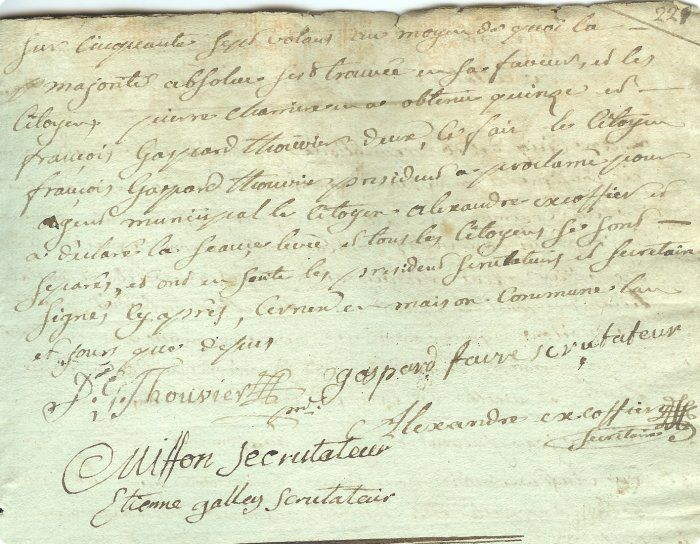 229
sur Cinquante sept votans au moyen de quoi la
majorité absolue s'est trouvée en sa faveur, et les
Citoyens pierre Charriere en a obtenu quinze et
françois Gaspard Thouvier deux, Ce fait le Citoyen
françois Gaspard Thouvier president a proclamé pour
agent municipal le Citoyen alexandre excoffier et
a déclaré la seance levée et tous les Citoyens se sont
separés, et ont en suite les president scrutateurs et secretaire
signés Cy après, Cernex en maison Commune l'an
et jours que dessus
f. G. Thouvier gaspard favre scrutateur
Alexandre excoffier
secretaire
Miffon secrutateur
Etienne galley scrutatair